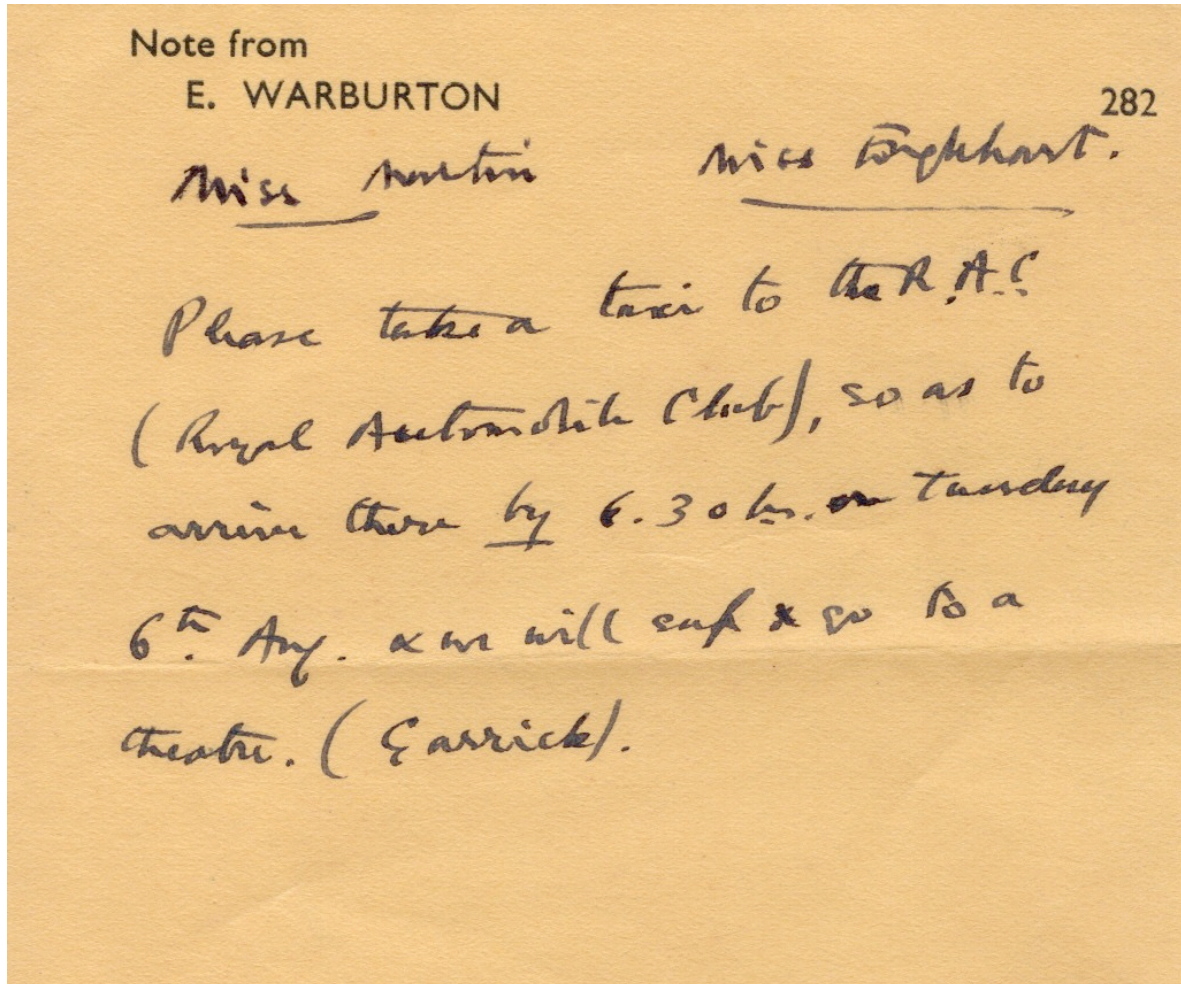 Note from
E. WARBURTON
282
Miss Martin Miss
Please take a taxi to the R.A.C
(Royal Automobile Club), so as to
arrive there by 6.30 hrs. on Tuesday
6th. Aug. & we will sup & go to a
theatre. (Garrick).